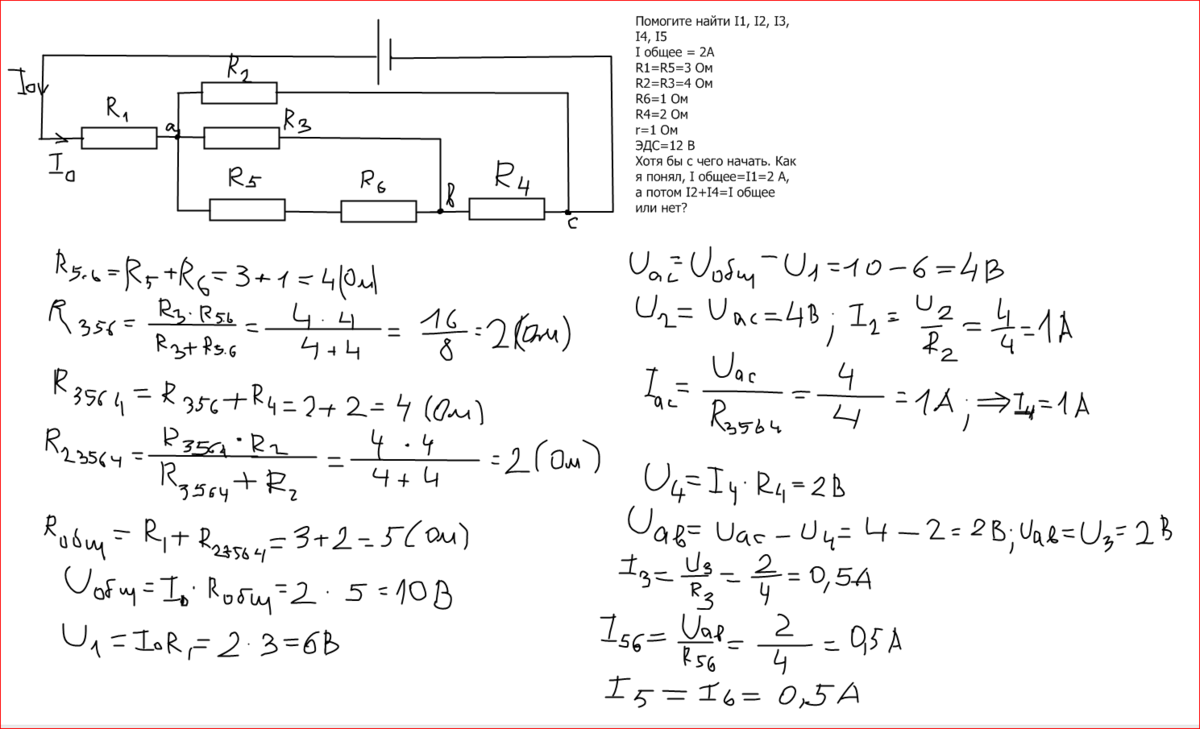 Помогите найти I1, I2, I3,
I4, I5
I общее = 2А
R1=R5=3 Ом
R2=R3=4 Ом
R6=1 Ом
R4=2 Ом
r=1 Ом
ЭДС=12 В
Хотя бы с чего начать. Как
я понял, I общее=I1=2 А,
а потом I2+I4=I общее
или нет?
R2
R1
a
R3
I0
R5
R6
B
R4
c
R5.6 = R5 + R6 = 3 + 1 = 4(Ом)
R356 = R3·R56 / R3+R5.6 = 4·4 / 4+4 = 16/8 = 2(Ом)
R3564 = R356 + R4 = 2+2 = 4 (Ом)
R23564 = R3564·R2 / R3564+R2 = 4·4 / 4+4 = 2(Ом)
Rобщ = R1 + R23564 = 3+2 = 5(Ом)
Uобщ = I0·Rобщ = 2·5 = 10В
U1 = I0R1 = 2·3 = 6В
Uac = Uобщ − U1 = 10−6 = 4В
U2 = Uac = 4В; I2 = U2/R2 = 4/4 = 1А
Iac = Uac/R3564 = 4/4 = 1А; ⇒ I4 = 1А
U4 = I4·R4 = 2В
Uав = Uac − U4 = 4−2 = 2В; Uав = U3 = 2В
I3 = U3/R3 = 2/4 = 0,5А
I56 = Uав/R56 = 2/4 = 0,5А
I5 = I6 = 0,5А